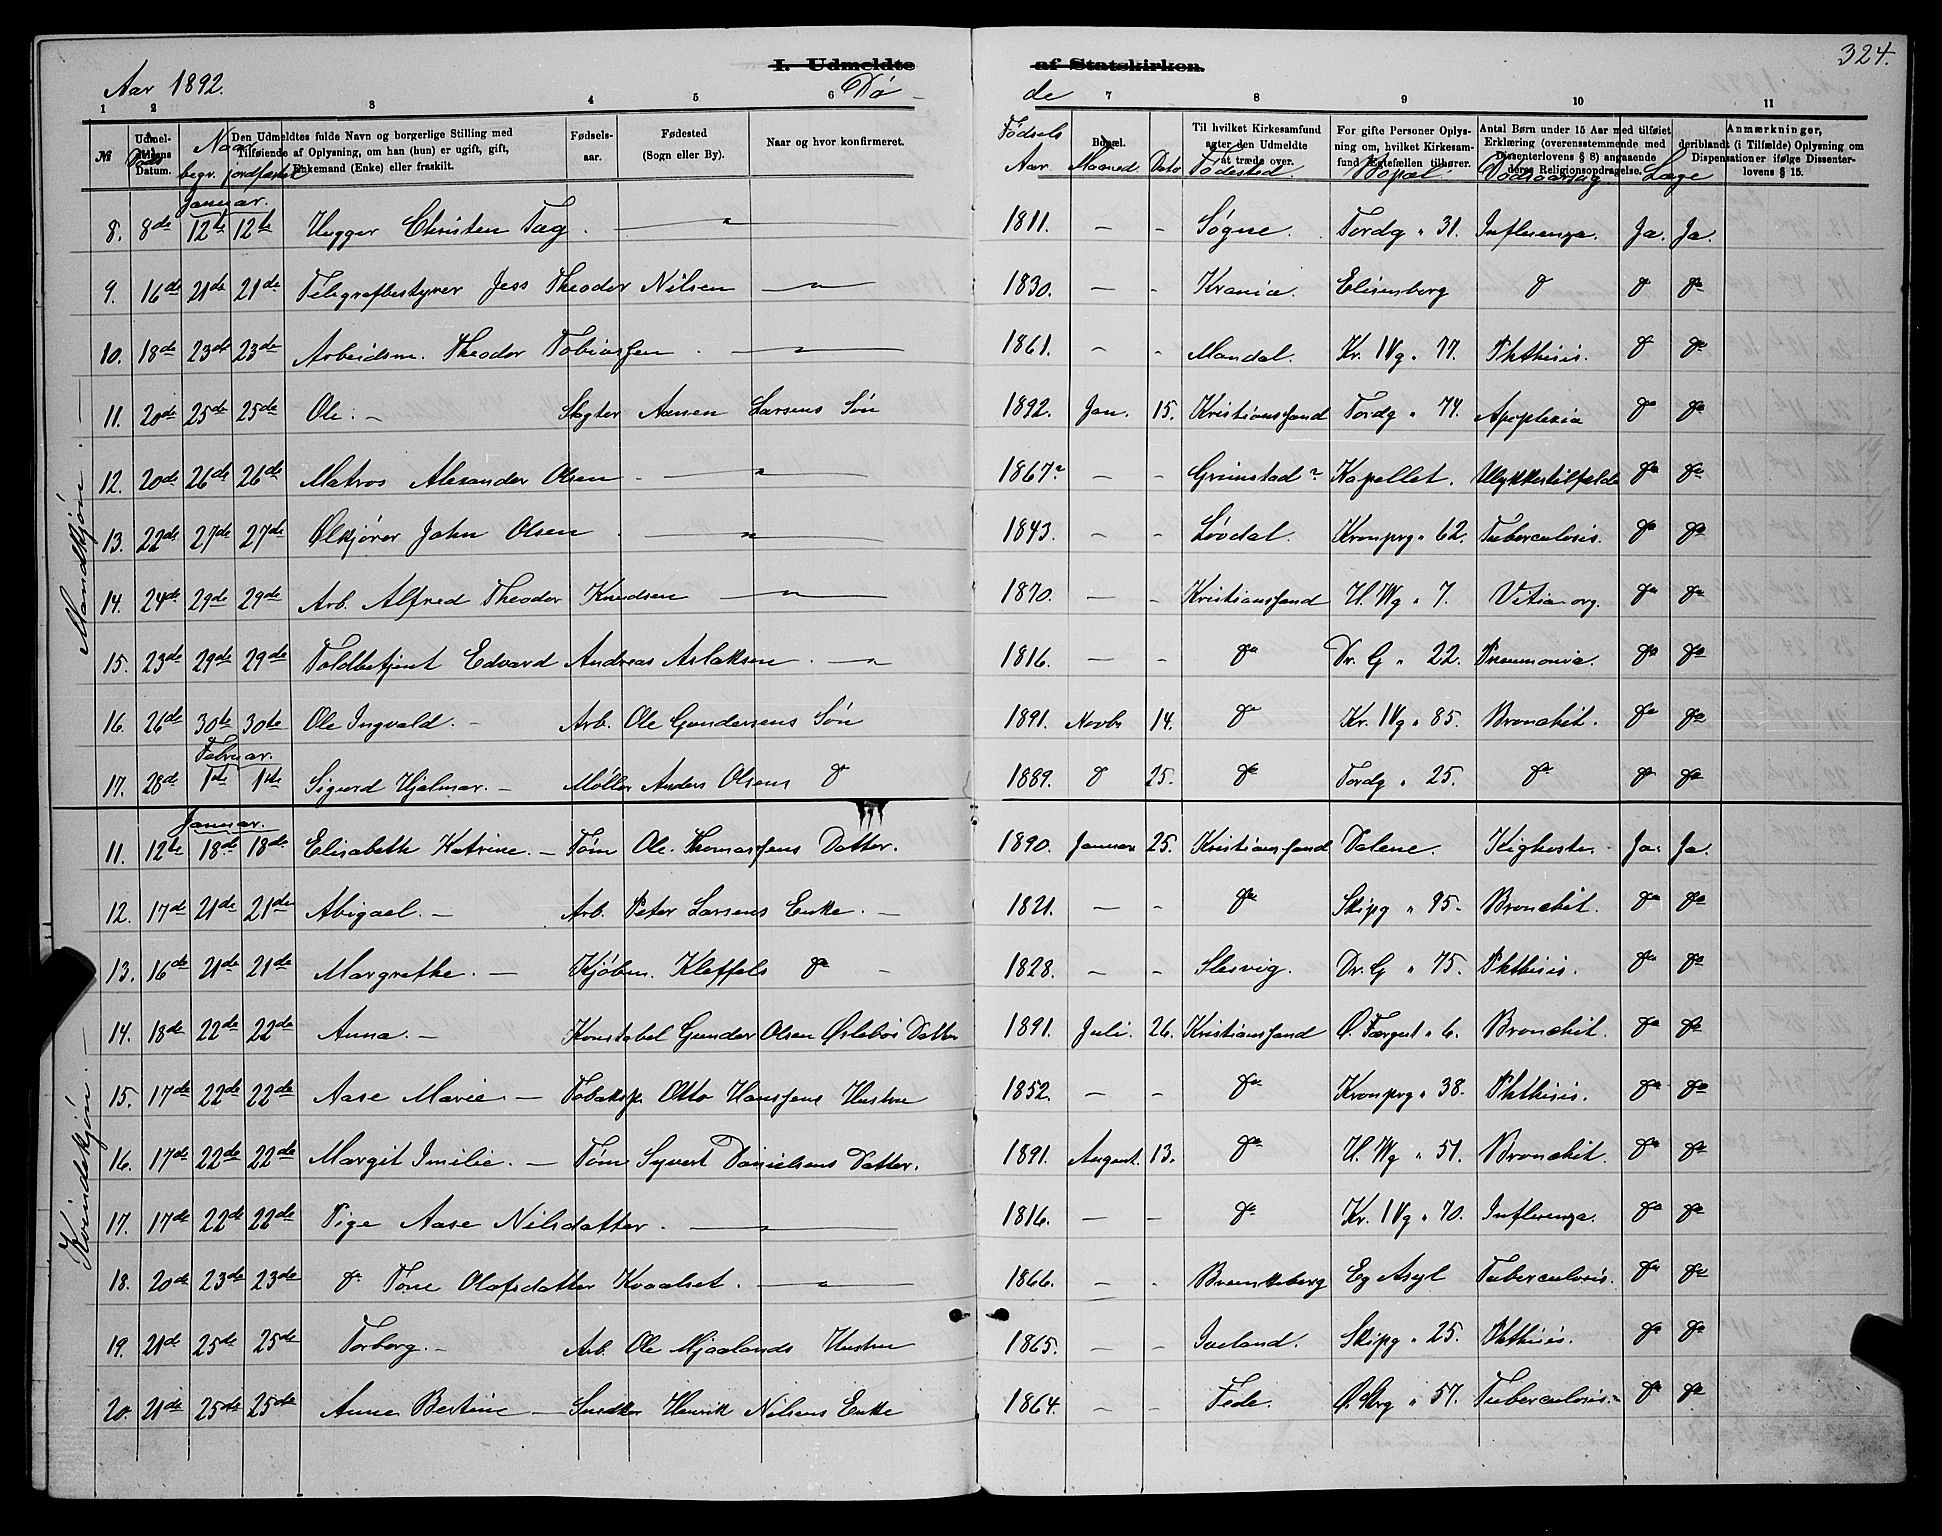 324.
Aar 1892.
I. Udmeldte af Statskirken.
Dø- de
1 2 3 4 5 6 7 8 9 10 11
№
Udmel-
delsens
Datum.
Døds
Naar
begr. jordfæstet
Den Udmeldtes fulde Navn og borgerlige Stilling med
Tilføiende af Oplysning, om han (hun) er ugift, gift,
Enkemand (Enke) eller fraskilt.
Fødsels-
aar.
Fødested
(Sogn eller By).
Naar og hvor konfirmeret.
Fødsels
Aar. Maaned Dato
Bopæl.
Til hvilket Kirkesamfund
agter den Udmeldte
at træde over.
Fødested.
For gifte Personer Oplys-
ning om, hvilket Kirkesam-
fund Ægtefællen tilhører.
Bopæl.
Antal Børn under 15 Aar med tilføiet
Erklæring (overensstemmende med
Dissenterlovens § 8) angaaende
deres Religionsopdragelse.
Dødsaarsag Læge
Anmærkninger,
deriblandt (i Tilfælde) Oplysning om
Dispensationer ifølge Dissenter-
lovens § 15.
Mandkjøn.
Januar.
8. 8de 12te 12te Hugger Christen Tag. — " — 1811. — - Søgne. Tordg " 31. Influenza. Ja. Ja.
9. 16de 21de 21de Telegrafbestyrer Jess Theodor Nilsen — " — 1830. — - Krania. Elisenberg do do do
10. 18de 23de 23de Arbeidsm. Theodor Tobiassen. — " — 1861. - - Mandal. Kr. IVg " 77. Phthisis. do do
11. 20de 25de 25de Ole. - Slagter Aanen Larsens Søn 1892. Jan. 15. Kristianssand Tordg " 74. Apoplexia do do
12. 20de 26de 26de Matros Alexander Olsen. — " — 1867? — - Grimstad? Kapellet. Ulykkestilfælde do do
13. 22de 27de 27de Ølkjører John Olsen — " — 1843. - - Løvdal. Kronprg " 62. Tuberculosis. do do
14. 24de 29de 29de Arb. Alfred Theodor Knudsen — " — 1870. — - Kristianssand H. Wg " 7. Vitia org. do do
15. 23de 29de 29de Toldbetjent Edvard Andreas Aslaksen. — " 1816. — - do Dr. G " 22. Pneumonia. do do
16. 26de 30te 30te Ole Ingvald. - Arb. Ole Gundersens Søn 1891. Novbr 14. do Kr. IVg " 85. Bronchit. do do
Februar.
17. 28de 1ste 1ste Sigurd Hjalmar. - Møller Anders Olsens do 1889. do 25. do Tordg " 25. do do do
Kvindekjøn.
Januar.
11. 12te 18de 18de Elisabeth Katrine. - Tøm Ole Thomassens Datter. 1890. Januar 25. Kristianssand Dalene. Kighoste. Ja. Ja.
12. 17de 21de 21de Abigael. - Arb. Peter Larsens Enke. - 1821. — - do Skipg " 95. Bronchit. do do
13. 16de 21de 21de Margrethe. - Kjøbm. Kleffels do - 1828. - - Slesvig. Dr. G " 75. Phthisis. do do
14. 18de 22de 22de Anna. - Konstabel Gunder Olsen Ørlebøs Datter 1891. Juli. 26. Kristianssand Ø. Færgest " 6. Bronchit. do do
15. 17de 22de 22de Aase Marie - Tobaksp. Otto Hanssens Hustru 1852. — - do Kronprg " 38. Phthisis. do do
16. 17de 22de 22de Margit Imilie. - Tøm Syvert Danielsens Datter. 1891. August. 13. do H. Wg " 51. Bronchit. do do
17. 17de 22de 22de Pige Aase Nilsdatter. — " — 1816. — - do Kr. IVg " 70. Influenza. do do
18. 20de 23de 23de do Tone Olafsdatter Kvaalset. — " — 1866. - - Brunkeberg Eg Asyl Tuberculosis. do do
19. 21de 25de 25de Torborg. - Arb. Ole Mjaalands Hustru 1865. - - Iveland. Skipg " 25. Phthisis. do do
20. 21de 25de 25de Anne Bertine - Snedker Henrik Nilsens Enke 1864. - - Fede. 57. Tuberculosis. do do